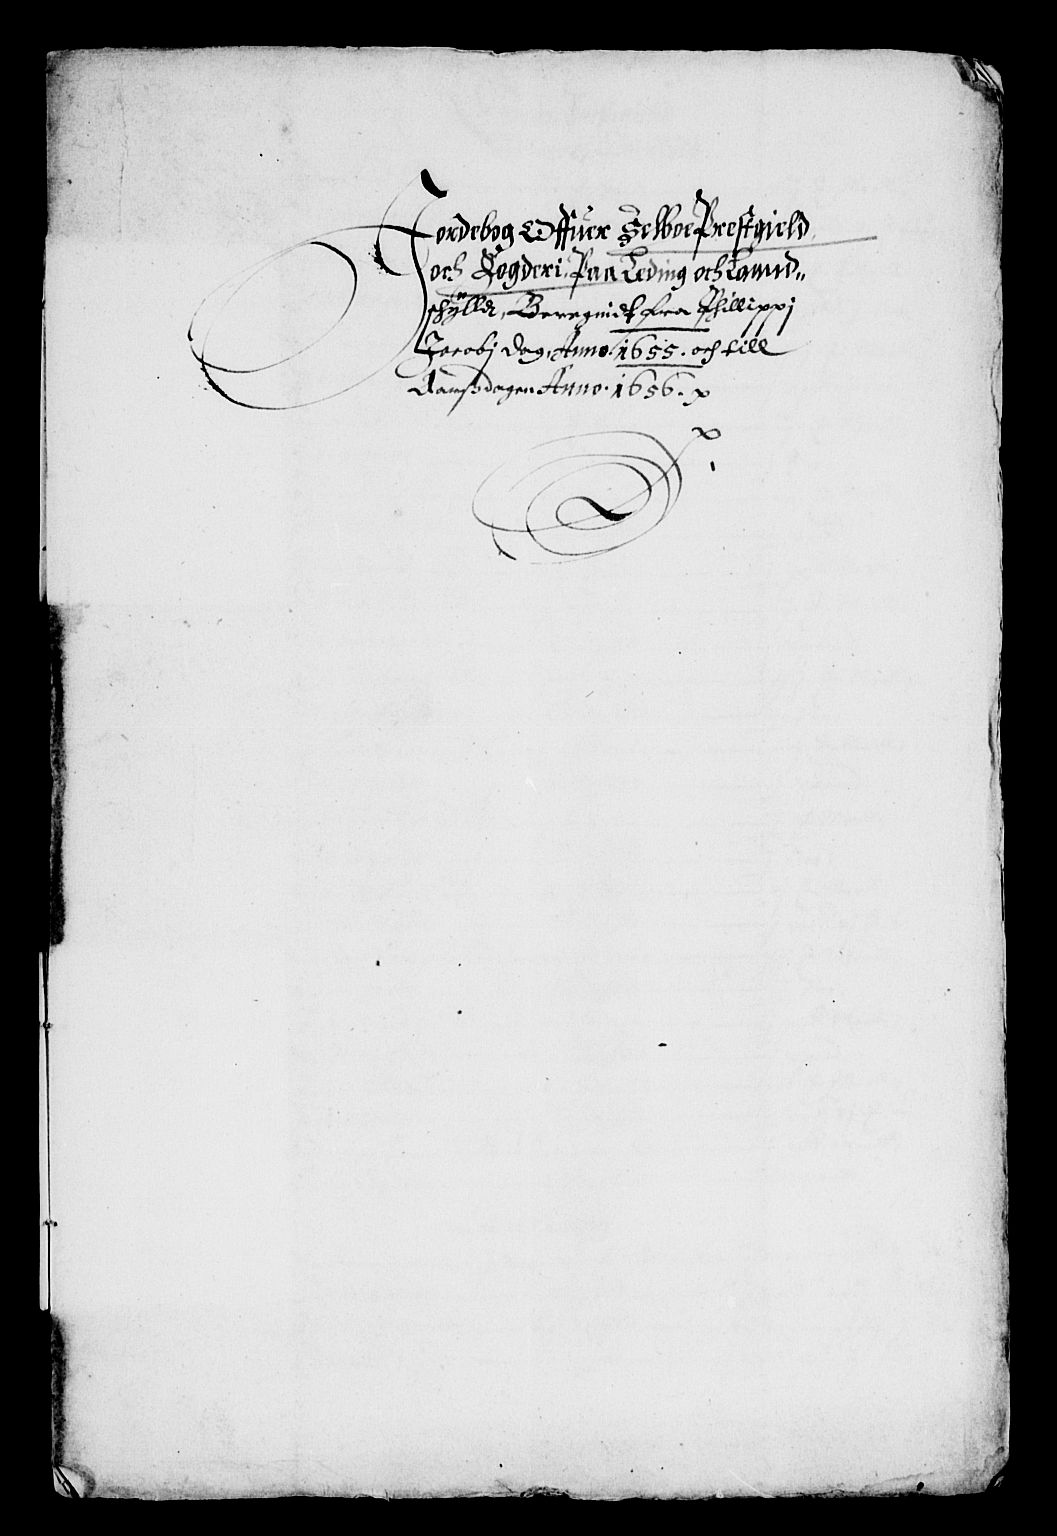 Jordebog Offuer Selboe Prestgield
och Fogderi, Paa Leding och Land„
schylld, Beregnidt fra Phillippj
Jacobj dag, Anno. 1655. och till
Aarsdagen Anno. 1656. p